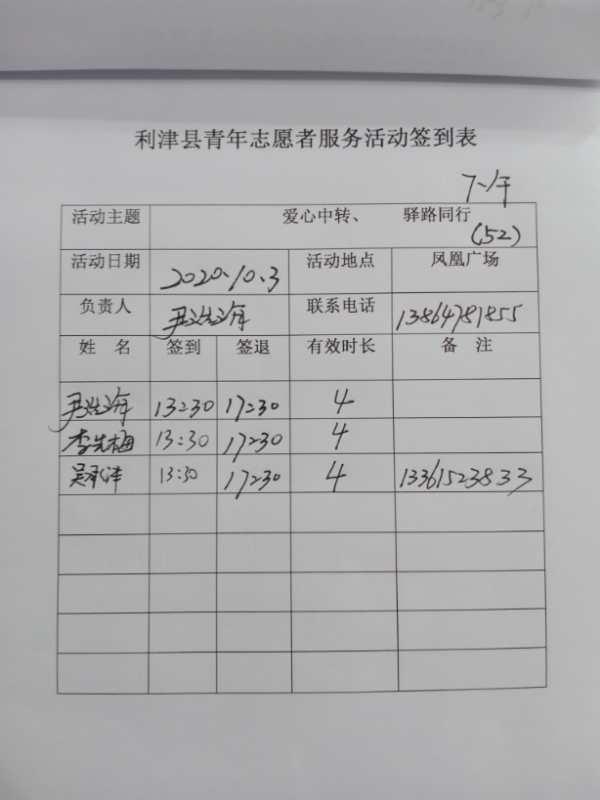 利津县青年志愿者服务活动签到表
下午
活动主题 爱心中转、 驿路同行
(52)
活动日期 2020.10.3 活动地点 凤凰广场
负责人 联系电话 13864781855
姓名 签到 签退 有效时长 备注
13:30 17:30 4
李先梅 13:30 17:30 4
13:30 17:30 4 13361523833